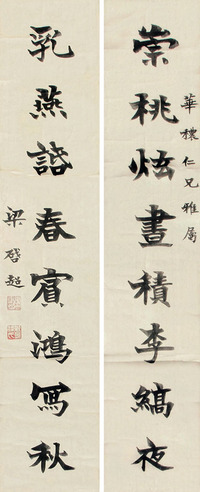 華仁兄雅屬
崇桃炫晝積李縞夜
乳燕諧春賓鴻寫秋
梁啓超